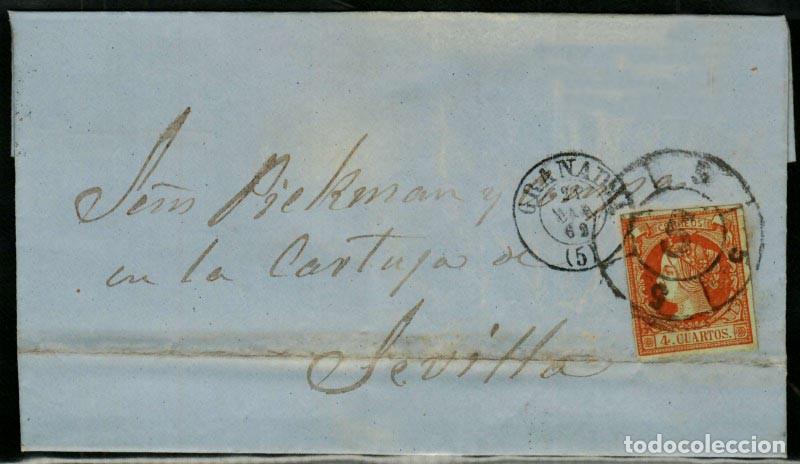 Señs Pickman y Compa
en la Cartuja de
Sevilla
GRANADA
MAR
62
(5)
CORREOS
4. CUARTOS.
5
5
5
todocoleccion